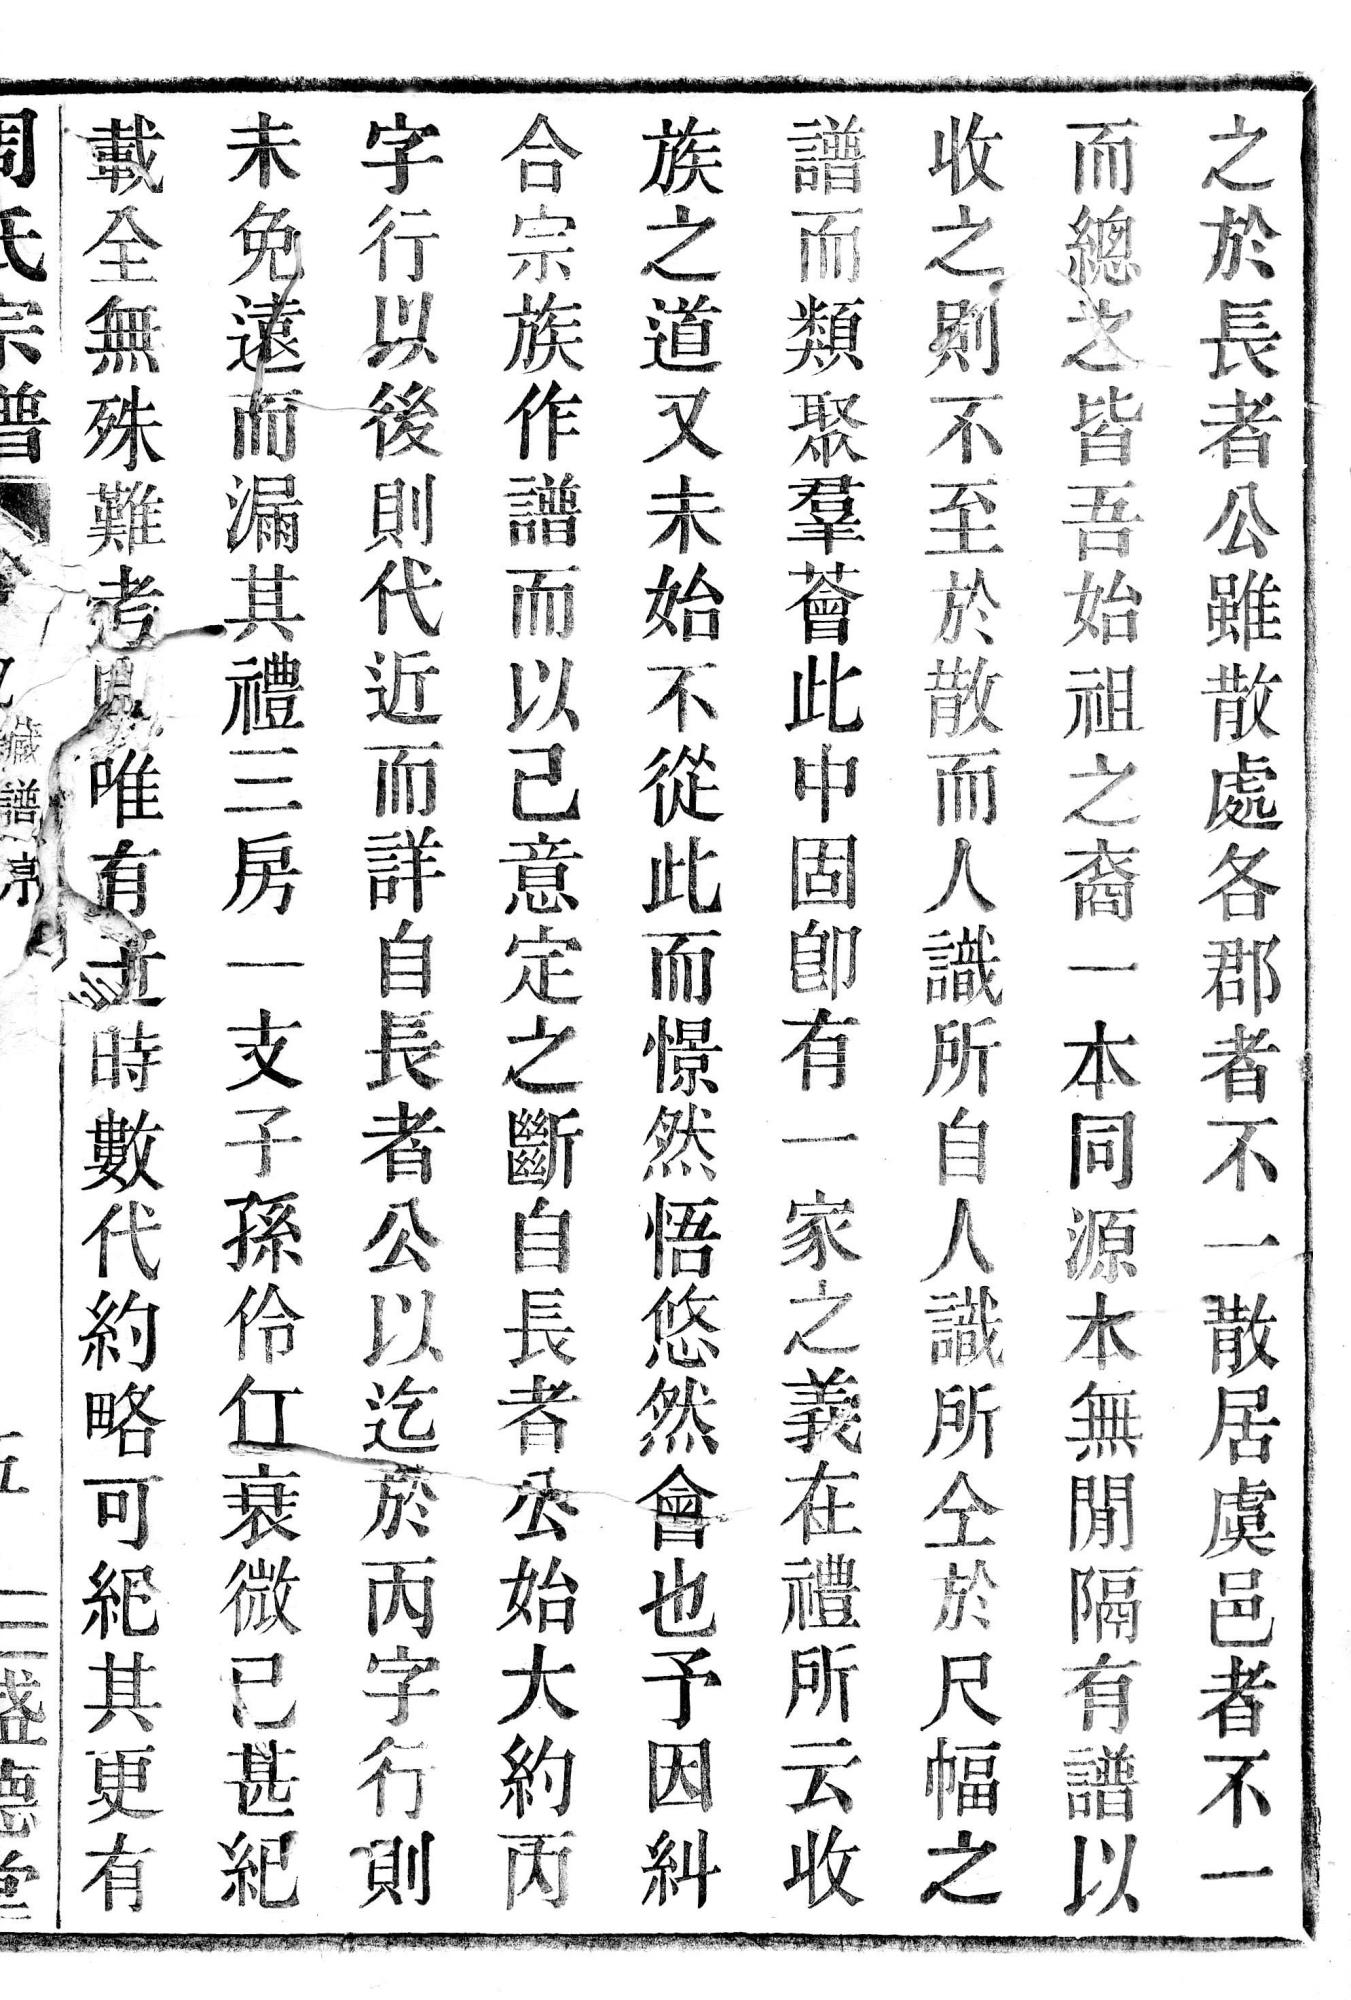 之於長者公雖散處各郡者不一散居虞邑者不一
而總之皆吾始祖之裔一本同源本無閒隔有譜以
收之則不至於散而人識所自人識所仝於尺幅之
譜而類聚羣薈此中固卽有一家之義在禮所云收
族之道又未始不從此而憬然悟悠然會也予因糾
合宗族作譜而以己意定之斷自長者公始大約丙
字行以後則代近而詳自長者公以迄於丙字行則
未免遠而漏其禮三房一支子孫伶仃衰微已甚紀
載全無殊難考唯有近時數代約略可紀其更有
周氏宗譜
藏譜
五
二
盛德堂